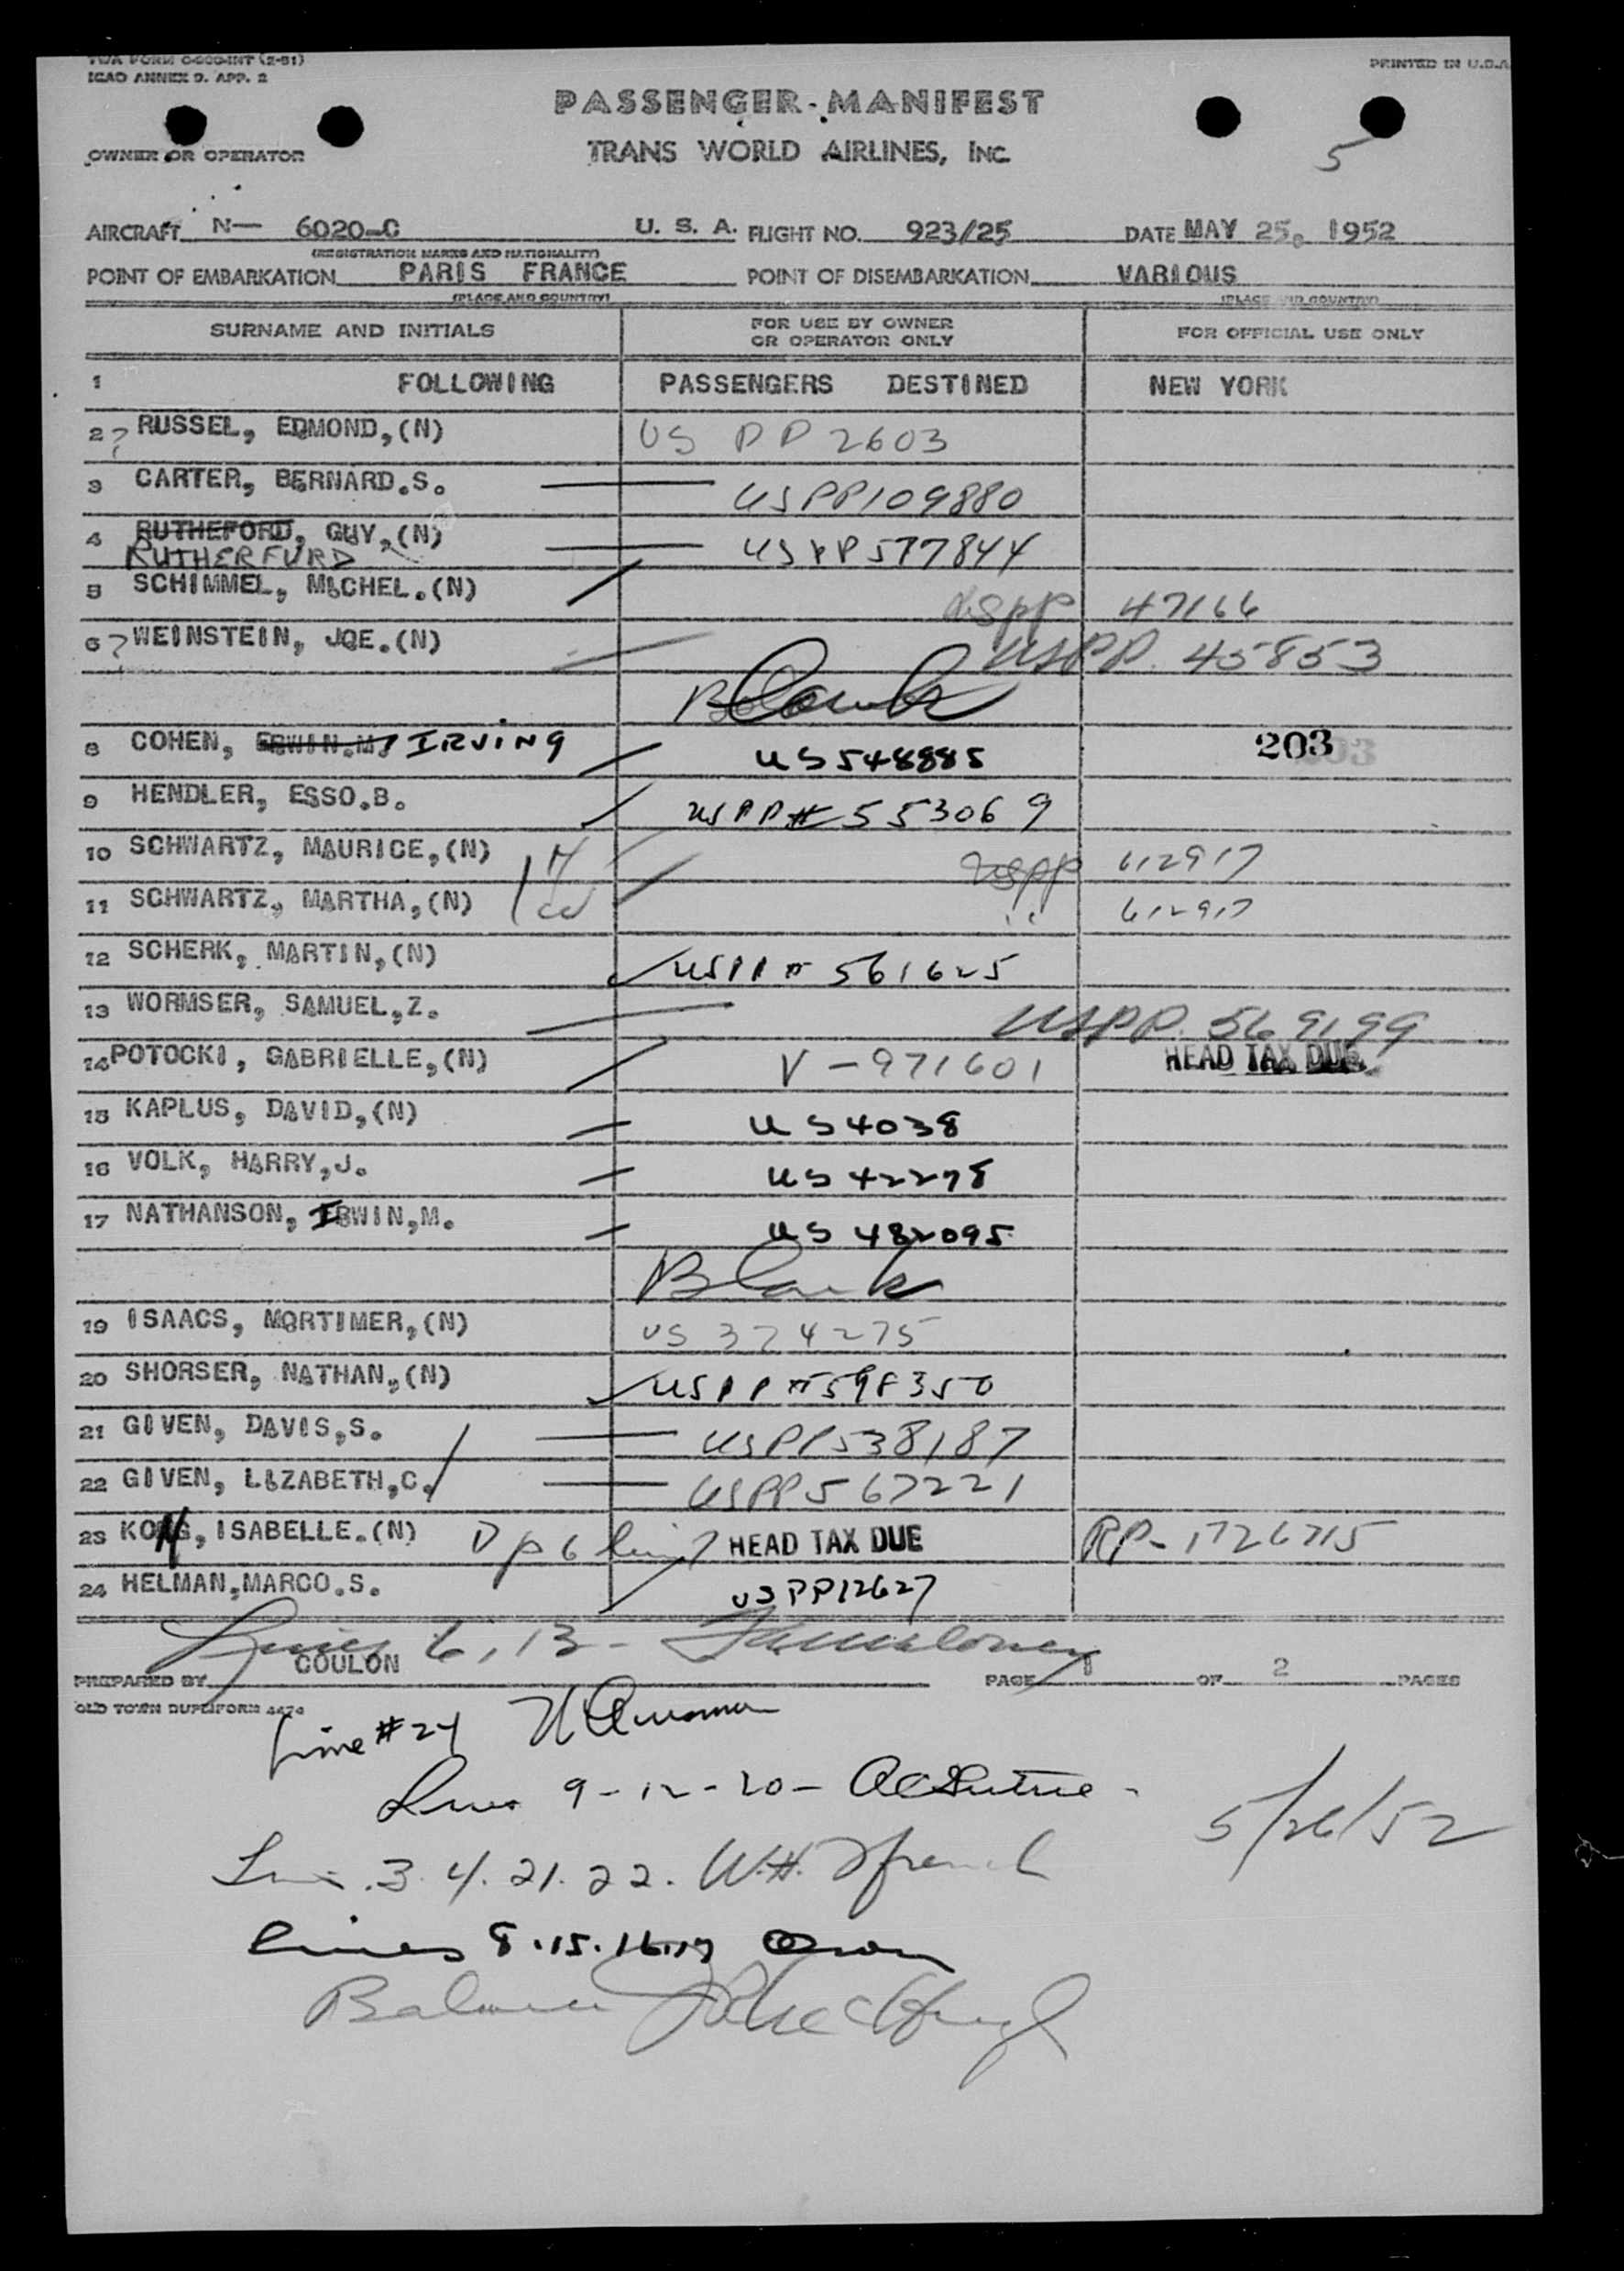 TWA FORM C-600-INT (2-51)
ICAO ANNEX 9. APP. 2
PRINTED IN U.S.A.
PASSENGER MANIFEST
OWNER OR OPERATOR
TRANS WORLD AIRLINES, INC.
5
AIRCRAFT N— 6020-C U. S. A. FLIGHT NO. 923/25 DATE MAY 25, 1952
(REGISTRATION MARKS AND NATIONALITY)
POINT OF EMBARKATION PARIS FRANCE POINT OF DISEMBARKATION VARIOUS
(PLACE AND COUNTRY) (PLACE AND COUNTRY)
SURNAME AND INITIALS FOR USE BY OWNER OR OPERATOR ONLY FOR OFFICIAL USE ONLY
1 FOLLOWING PASSENGERS DESTINED NEW YORK
2 ? RUSSEL, EDMOND,(N) US PP 2603
3 CARTER, BERNARD.S. US PP109880
4 RUTHEFORD, GUY,(N) US PP 577844
RUTHERFURD
5 SCHIMMEL, MICHEL.(N) uspp 47166
6 ? WEINSTEIN, JOE.(N) USPP. 45853
Blank
8 COHEN, ERWIN.M. IRVING US 548885 203
9 HENDLER, ESSO.B. US PP# 553069
10 SCHWARTZ, MAURICE,(N) H uspp 612917
11 SCHWARTZ, MARTHA,(N) W " 612917
12 SCHERK, MARTIN,(N) USPP# 561625
13 WORMSER, SAMUEL,Z. USPP. 569199
14 POTOCKI, GABRIELLE,(N) V-971601 HEAD TAX DUE
15 KAPLUS, DAVID,(N) US 4038
16 VOLK, HARRY,J. US 42278
17 NATHANSON, IRWIN,M. US 482095
Blank
19 ISAACS, MORTIMER,(N) US 374275
20 SHORSER, NATHAN,(N) USPP#598350
21 GIVEN, DAVIS,S. USPP538187
22 GIVEN, LIZABETH,C. USPP567221
23 KONG, ISABELLE.(N) HEAD TAX DUE RP-1726715
24 HELMAN,MARCO.S. US PP12627
Lines 6, 13 -
PREPARED BY COULON PAGE 1 OF 2 PAGES
OLD TOWN DUPLIFORM 4474
Line #24
Lines 9-12-20-
5/26/52
Lines .3.4.21.22. W.H.
Lines 8.15.16.17
Balance